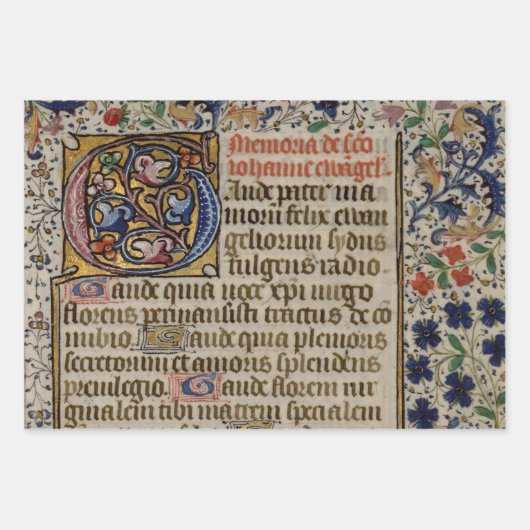 Memoria de sc̄o
iohanne ewāgel'.
Gaude pater via
morū felix ewan
geliorum sydus
fulgens radio.
Gaude quia uoce xp̄i uirgo
florens permansisti tractus de cō
nubio. Gaude quia plemoris
secretorum et amoris splendens
preuilegio. Gaude florem uir
ginalem tibi matrem specialem